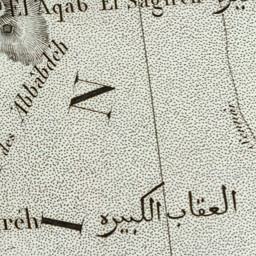 El Aqab El Sagireh
des Abbâbdéh
N
العقاب الكبيره
reh